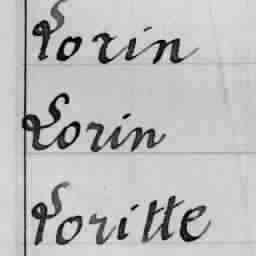 Lorin
Lorin
Loritte